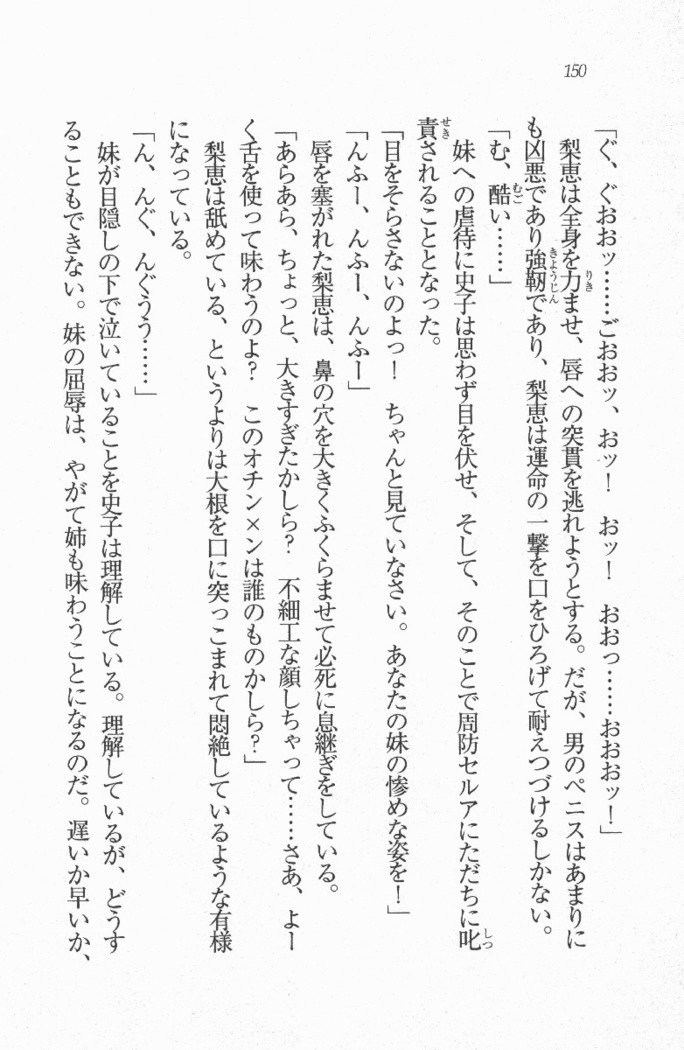 150
「ぐ、ぐおおッ……ごおおッ、おッ！　おッ！　おおっ……おおおッ！」
梨恵は全身を力ませ、唇への突貫を逃れようとする。だが、男のペニスはあまりに
りき
も凶悪であり強靭であり、梨恵は運命の一撃を口をひろげて耐えつづけるしかない。
きょうじん
「む、酷い……」
むご
妹への虐待に史子は思わず目を伏せ、そして、そのことで周防セルアにただちに叱
しつ
責されることとなった。
せき
「目をそらさないのよっ！　ちゃんと見ていなさい。あなたの妹の惨めな姿を！」
「んふー、んふー、んふー」
唇を塞がれた梨恵は、鼻の穴を大きくふくらませて必死に息継ぎをしている。
「あらあら、ちょっと、大きすぎたかしら？　不細工な顔しちゃって……さあ、よー
く舌を使って味わうのよ？　このオチン×ンは誰のものかしら？」
梨恵は舐めている、というよりは大根を口に突っこまれて悶絶しているような有様
になっている。
「ん、んぐ、んぐうう……」
妹が目隠しの下で泣いていることを史子は理解している。理解しているが、どうす
ることもできない。妹の屈辱は、やがて姉も味わうことになるのだ。遅いか早いか、